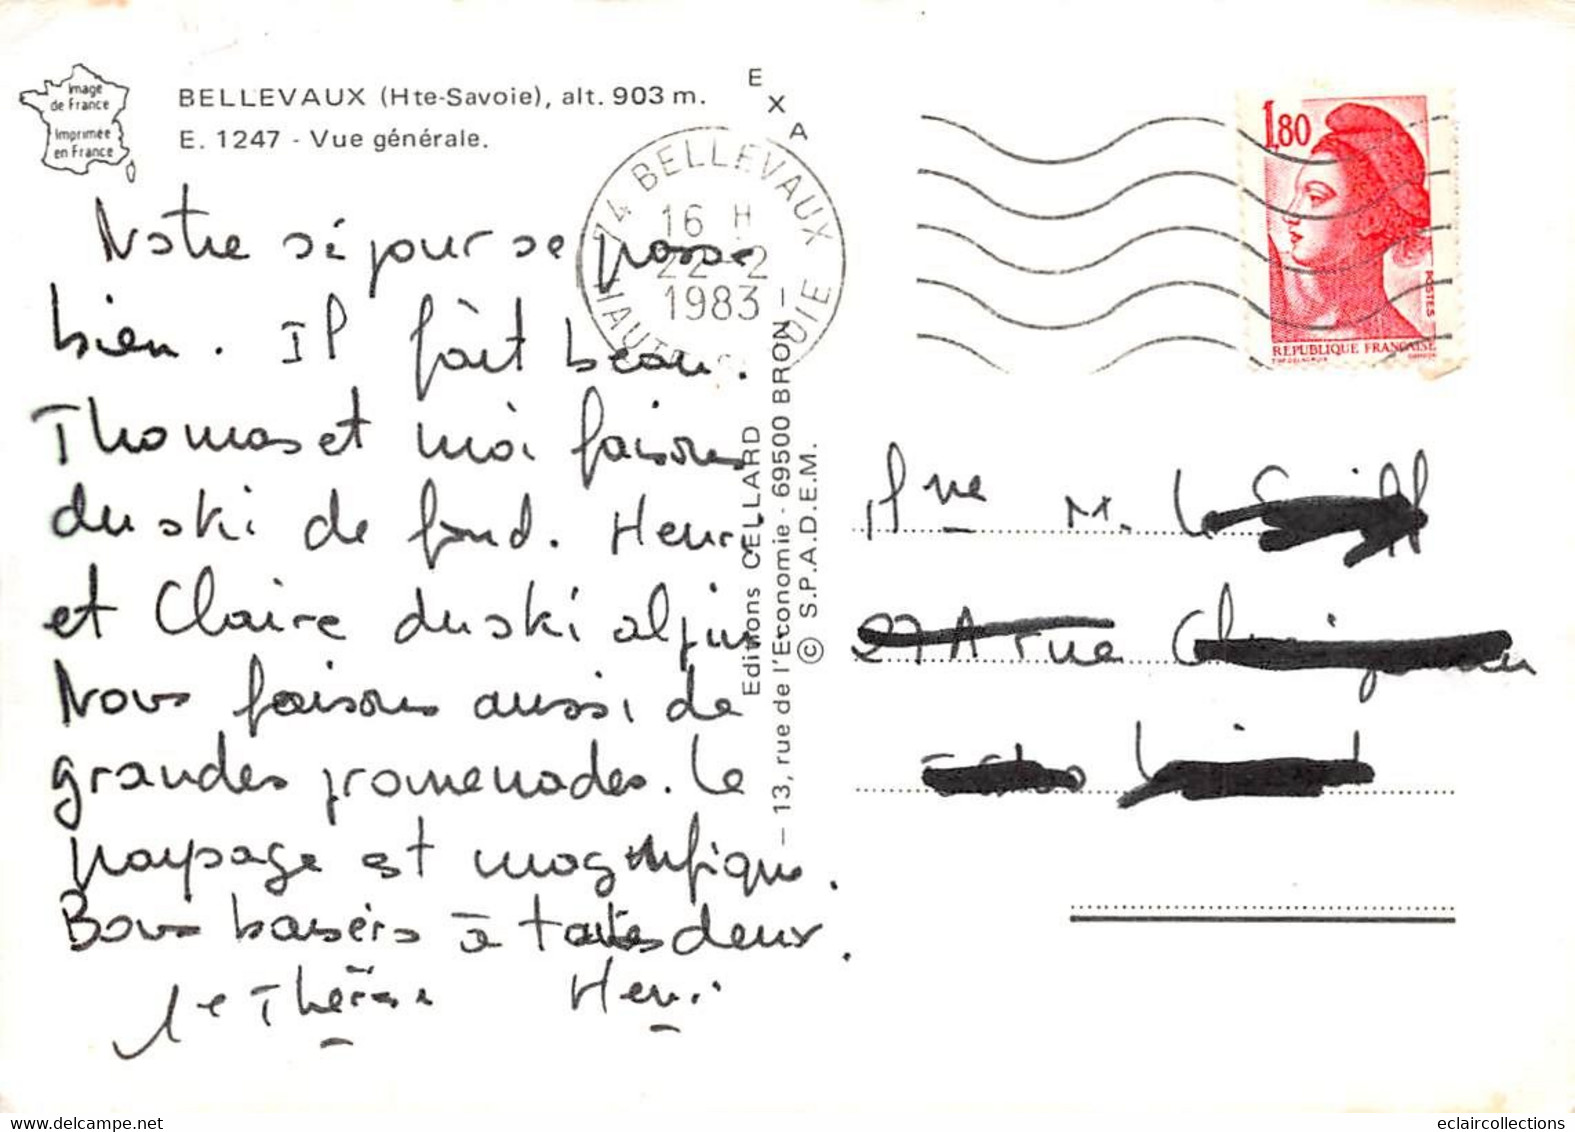 Image
de France
Imprimée
en France
BELLEVAUX (Hte-Savoie), alt. 903 m.
E. 1247 - Vue générale.
EXA
74 BELLEVAUX
16 H
22-2
1983
1,80
POSTES
REPUBLIQUE FRANÇAISE
Notre séjour se passe
bien. Il fait beau.
Thomas et moi faisons
du ski de fond. Henri
et Claire du ski alpin.
Nous faisons aussi de
grandes promenades. Le
paysage est magnifique.
Bons baisers à toutes deux.
Thérèse Henri
Editions CELLARD
— 13, rue de l'Economie - 69500 BRON —
© S.P.A.D.E.M.
Mme M. Le
rue
eclaircollections